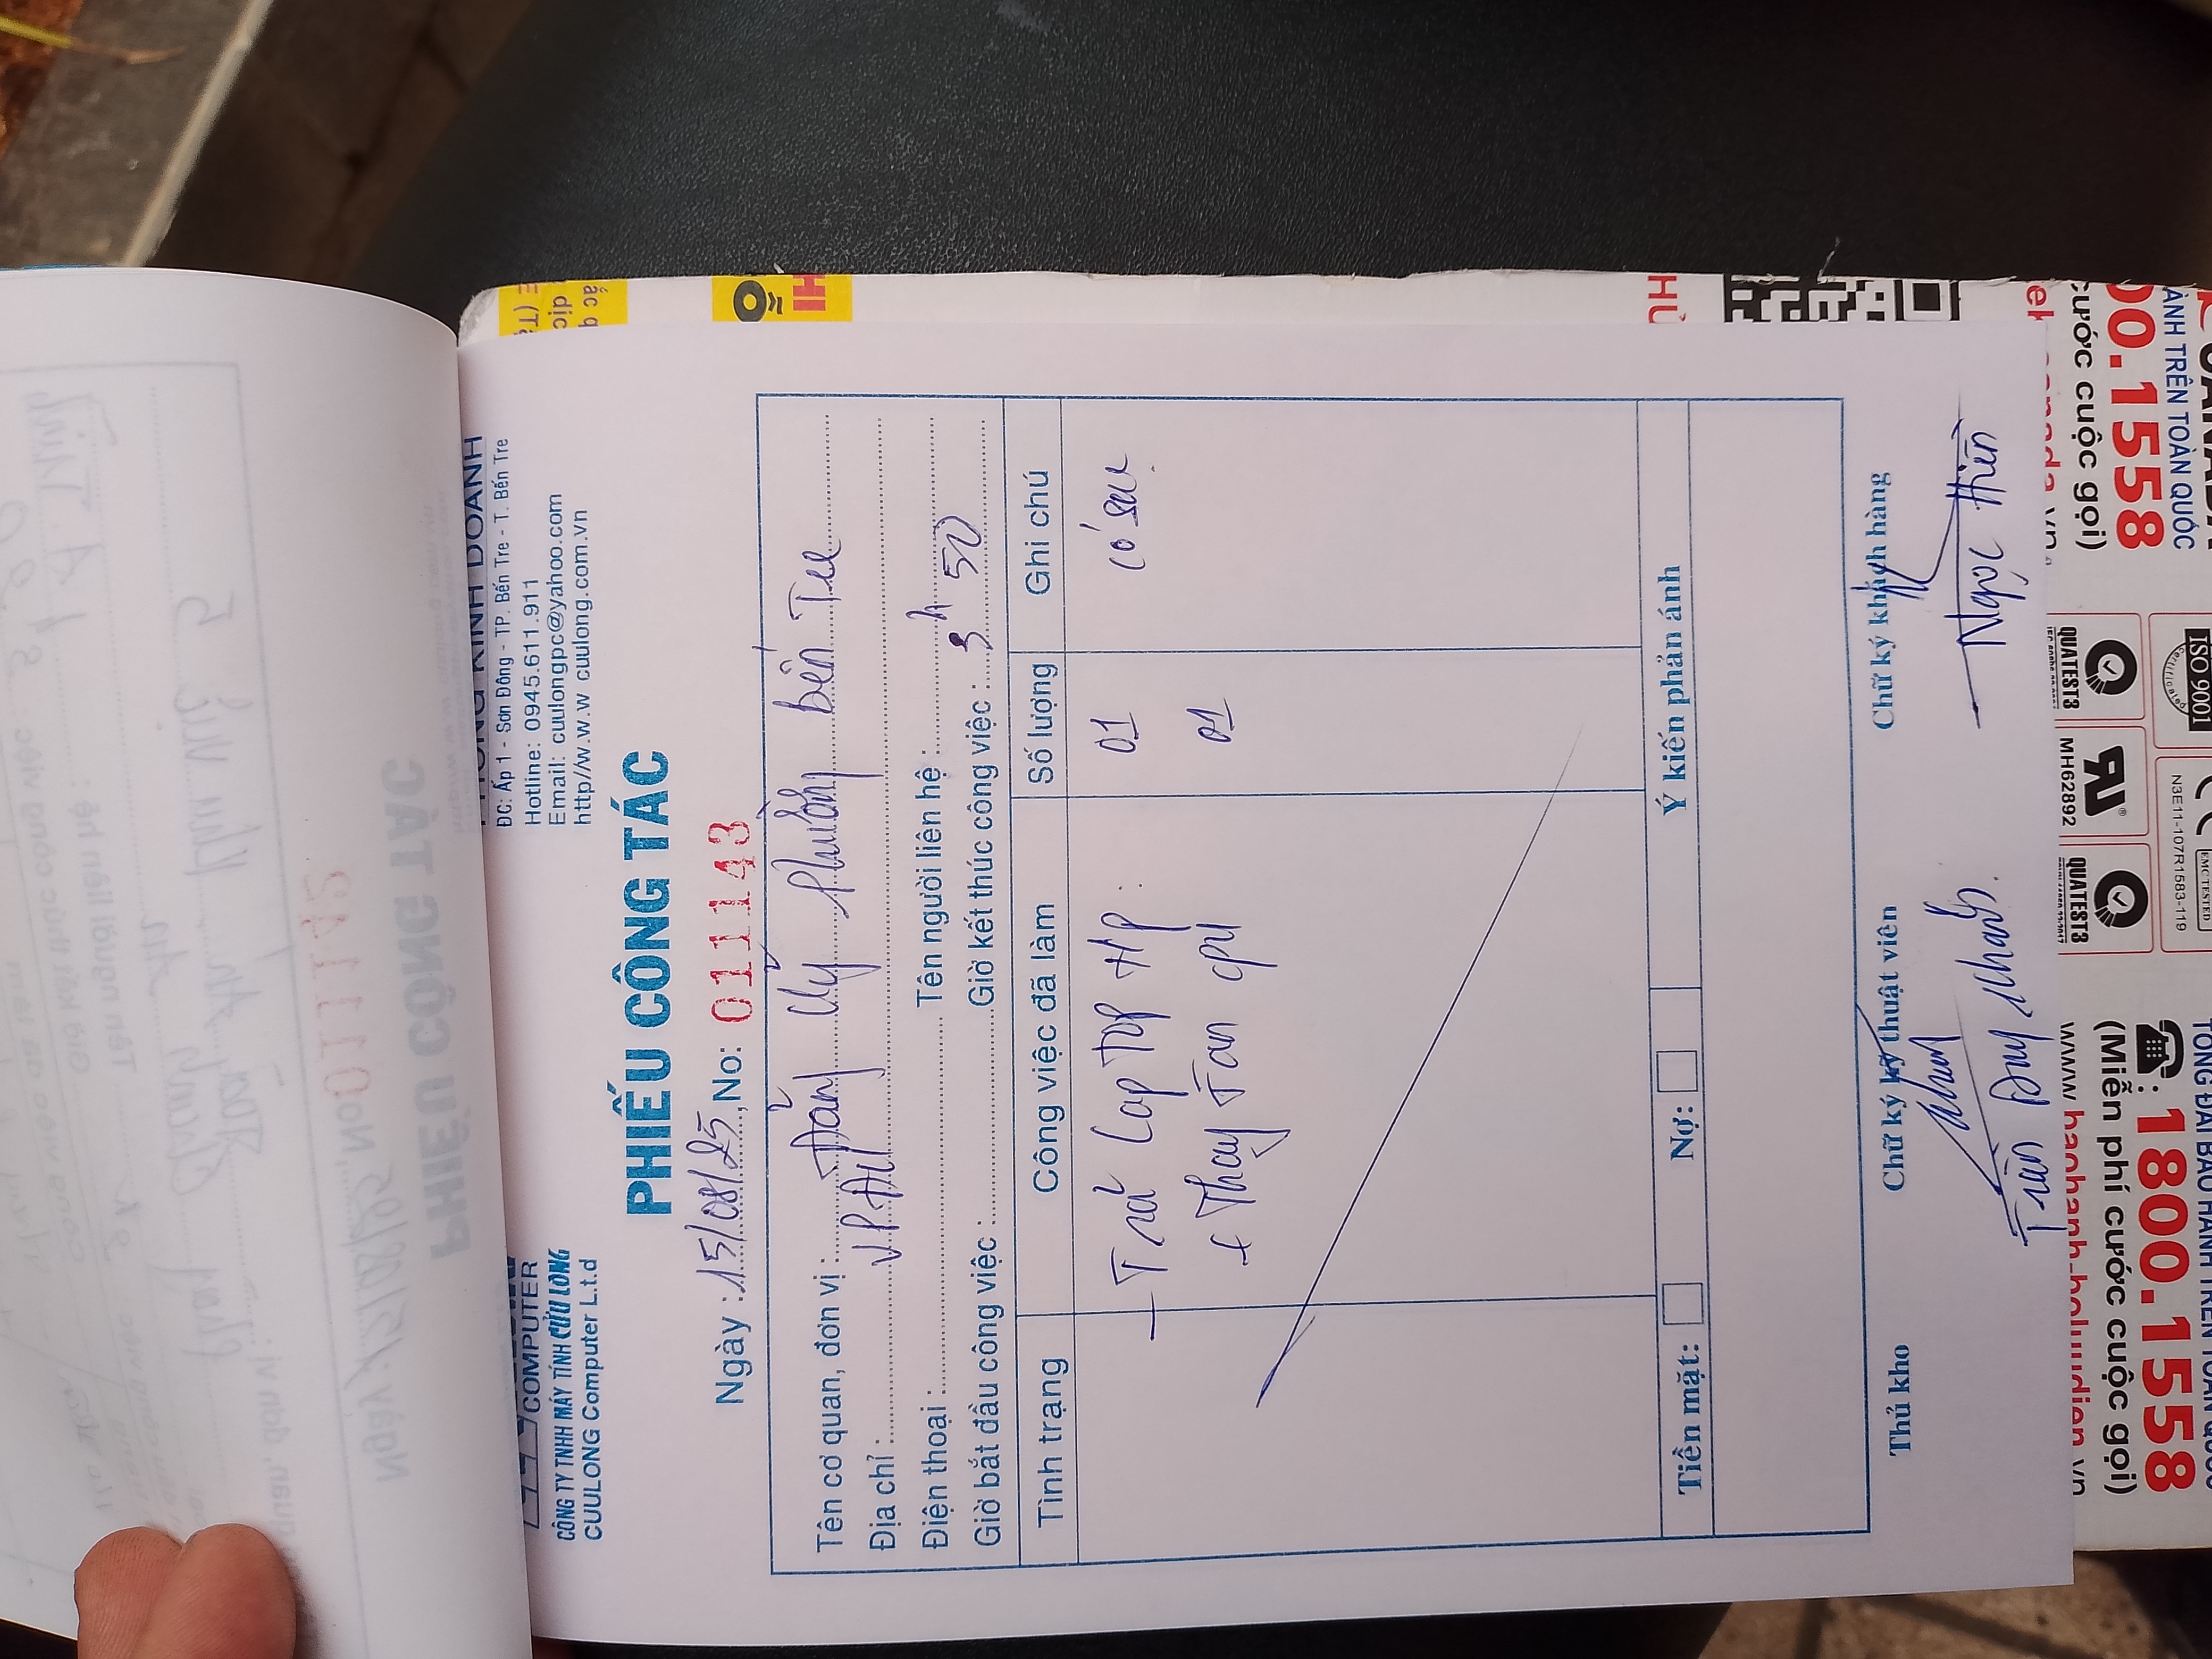 COMPUTER
CÔNG TY TNHH MÁY TÍNH CỬU LONG
CUULONG Computer L.t.d
PHÒNG KINH DOANH
ĐC: Ấp 1 - Sơn Đông - TP. Bến Tre - T. Bến Tre
Hotline: 0945.611.911
Email: cuulongpc@yahoo.com
http//w.w.w cuulong.com.vn
PHIẾU CÔNG TÁC
Ngày : 15/08/25, No: 011143
Tên cơ quan, đơn vị : Đảng Uỷ Phường Bến Tre
Địa chỉ : VP. ĐU
Điện thoại : Tên người liên hệ :
Giờ bắt đầu công việc : Giờ kết thúc công việc : 3h 50
Tình trạng Công việc đã làm Số lượng Ghi chú
- Trả Lap Top HP : 01 có sau
+ Thay Fan CPU 01
Tiền mặt: Nợ: Ý kiến phản ánh
Thủ kho Chữ ký kỹ thuật viên Chữ ký khách hàng
Trần Duy Khanh Ngọc Hiền
HỖ
ISO 9001
QUATEST3
MH62892
QUATEST3
N3E11-107R1583-119
EMC TESTED
TỔNG ĐÀI BẢO HÀNH TRÊN TOÀN QUỐC
1800.1558
(Miễn phí cước cuộc gọi)
www.baohanh-beluudien.vn
ÀNH TRÊN TOÀN QUỐC
00.1558
cước cuộc gọi)